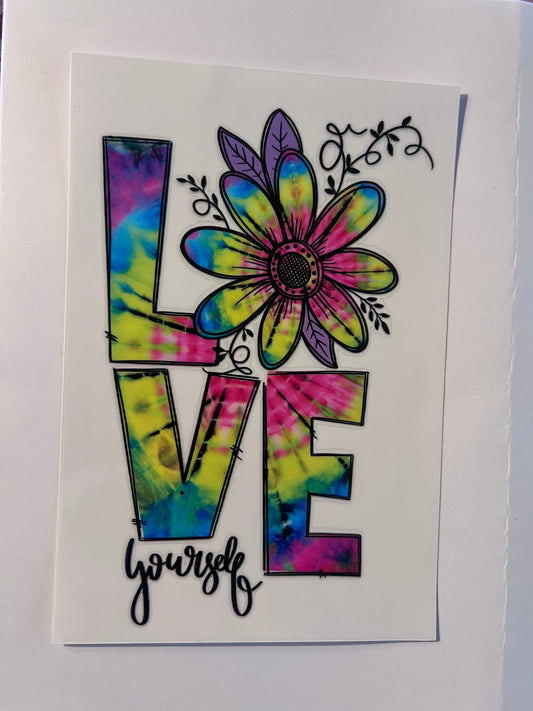 LO
VE
yourself